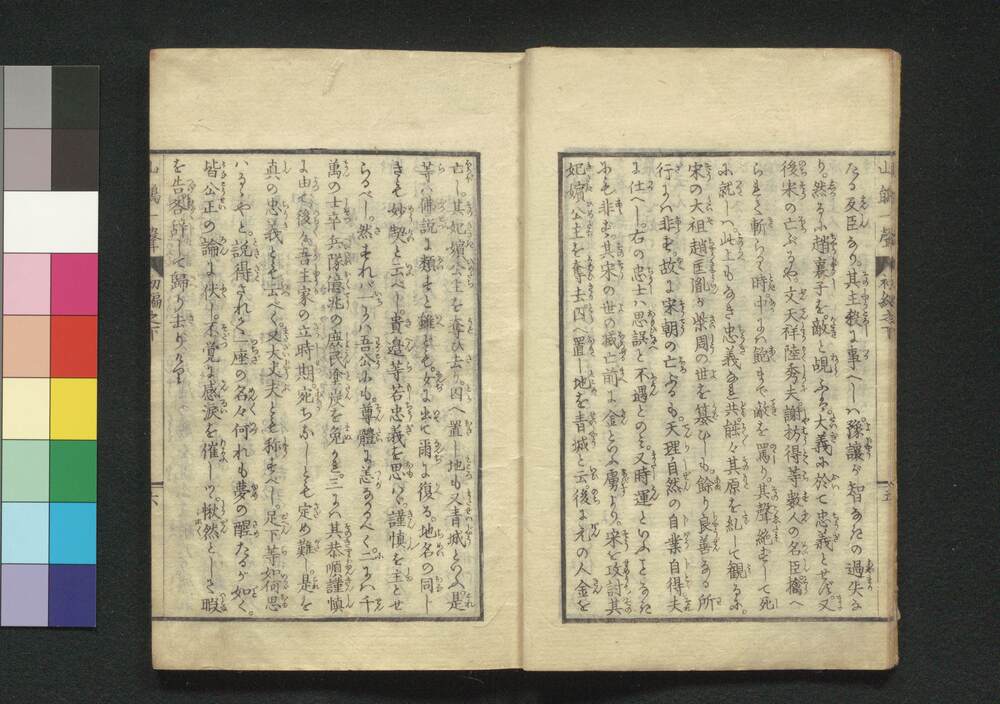 たる反臣なり。其主殺の事へしハ豫讓が智なたの過失な
り。然るに趙襄子を敵と覘ふる。大義に於て忠義とせず。又
後宋の亡ぶるや文天祥陸秀夫謝枋得等数人の名臣擒へ
られて斬らる時中にハ飽まで敵を罵り。其聲絶ずして死
に就しハ。此上もなき忠義なれ共。能々其原を糺して観るに。
宋の大祖趙匡胤が柴周の世を簒ひしも。餘り良善なる所
行にハ非ず。故に宋朝の亡ぶるも。天理自然の自業自得夫
に仕へし。右の忠士ハ思誤と不遇とのミ。又時運といふところな
にも非ず。其宋の世の滅亡前に金といふ虜より。宋を攻討其
妃嬪公主を奪去囚へ置し地を青城と云。後に元の人金を
山鵑一聲 初編之下 五
亡し。其妃嬪公主を奪ひ去り囚へ置し地も又青城といふ。是
等ハ佛説に類せと雖ども。女に出て雨に復る。地名の同し
きも妙契と云べし。貴邉等若忠義を思ハゞ。謹慎を主とせ
らるべし。然すれバ一にハ吾公にも。尊體に恙なかるべく。二にハ千
萬の士卒兵隊億兆の庶民塗炭を免かれ。三にハ其恭順謹慎
に由て後々吾主家の立時期死ちなしとも定め難し。是を
真の忠義とも云べく。又大丈夫とも称すべし。足下等如何思
ハるゝやと。説得されて一座の名々何れも夢の醒たるが如く。
皆公正の論に伏し。不覚に感涙を催しつ。愀然として暇
を告各々辞して帰り去りけり
山鵑一聲 初編之下 六